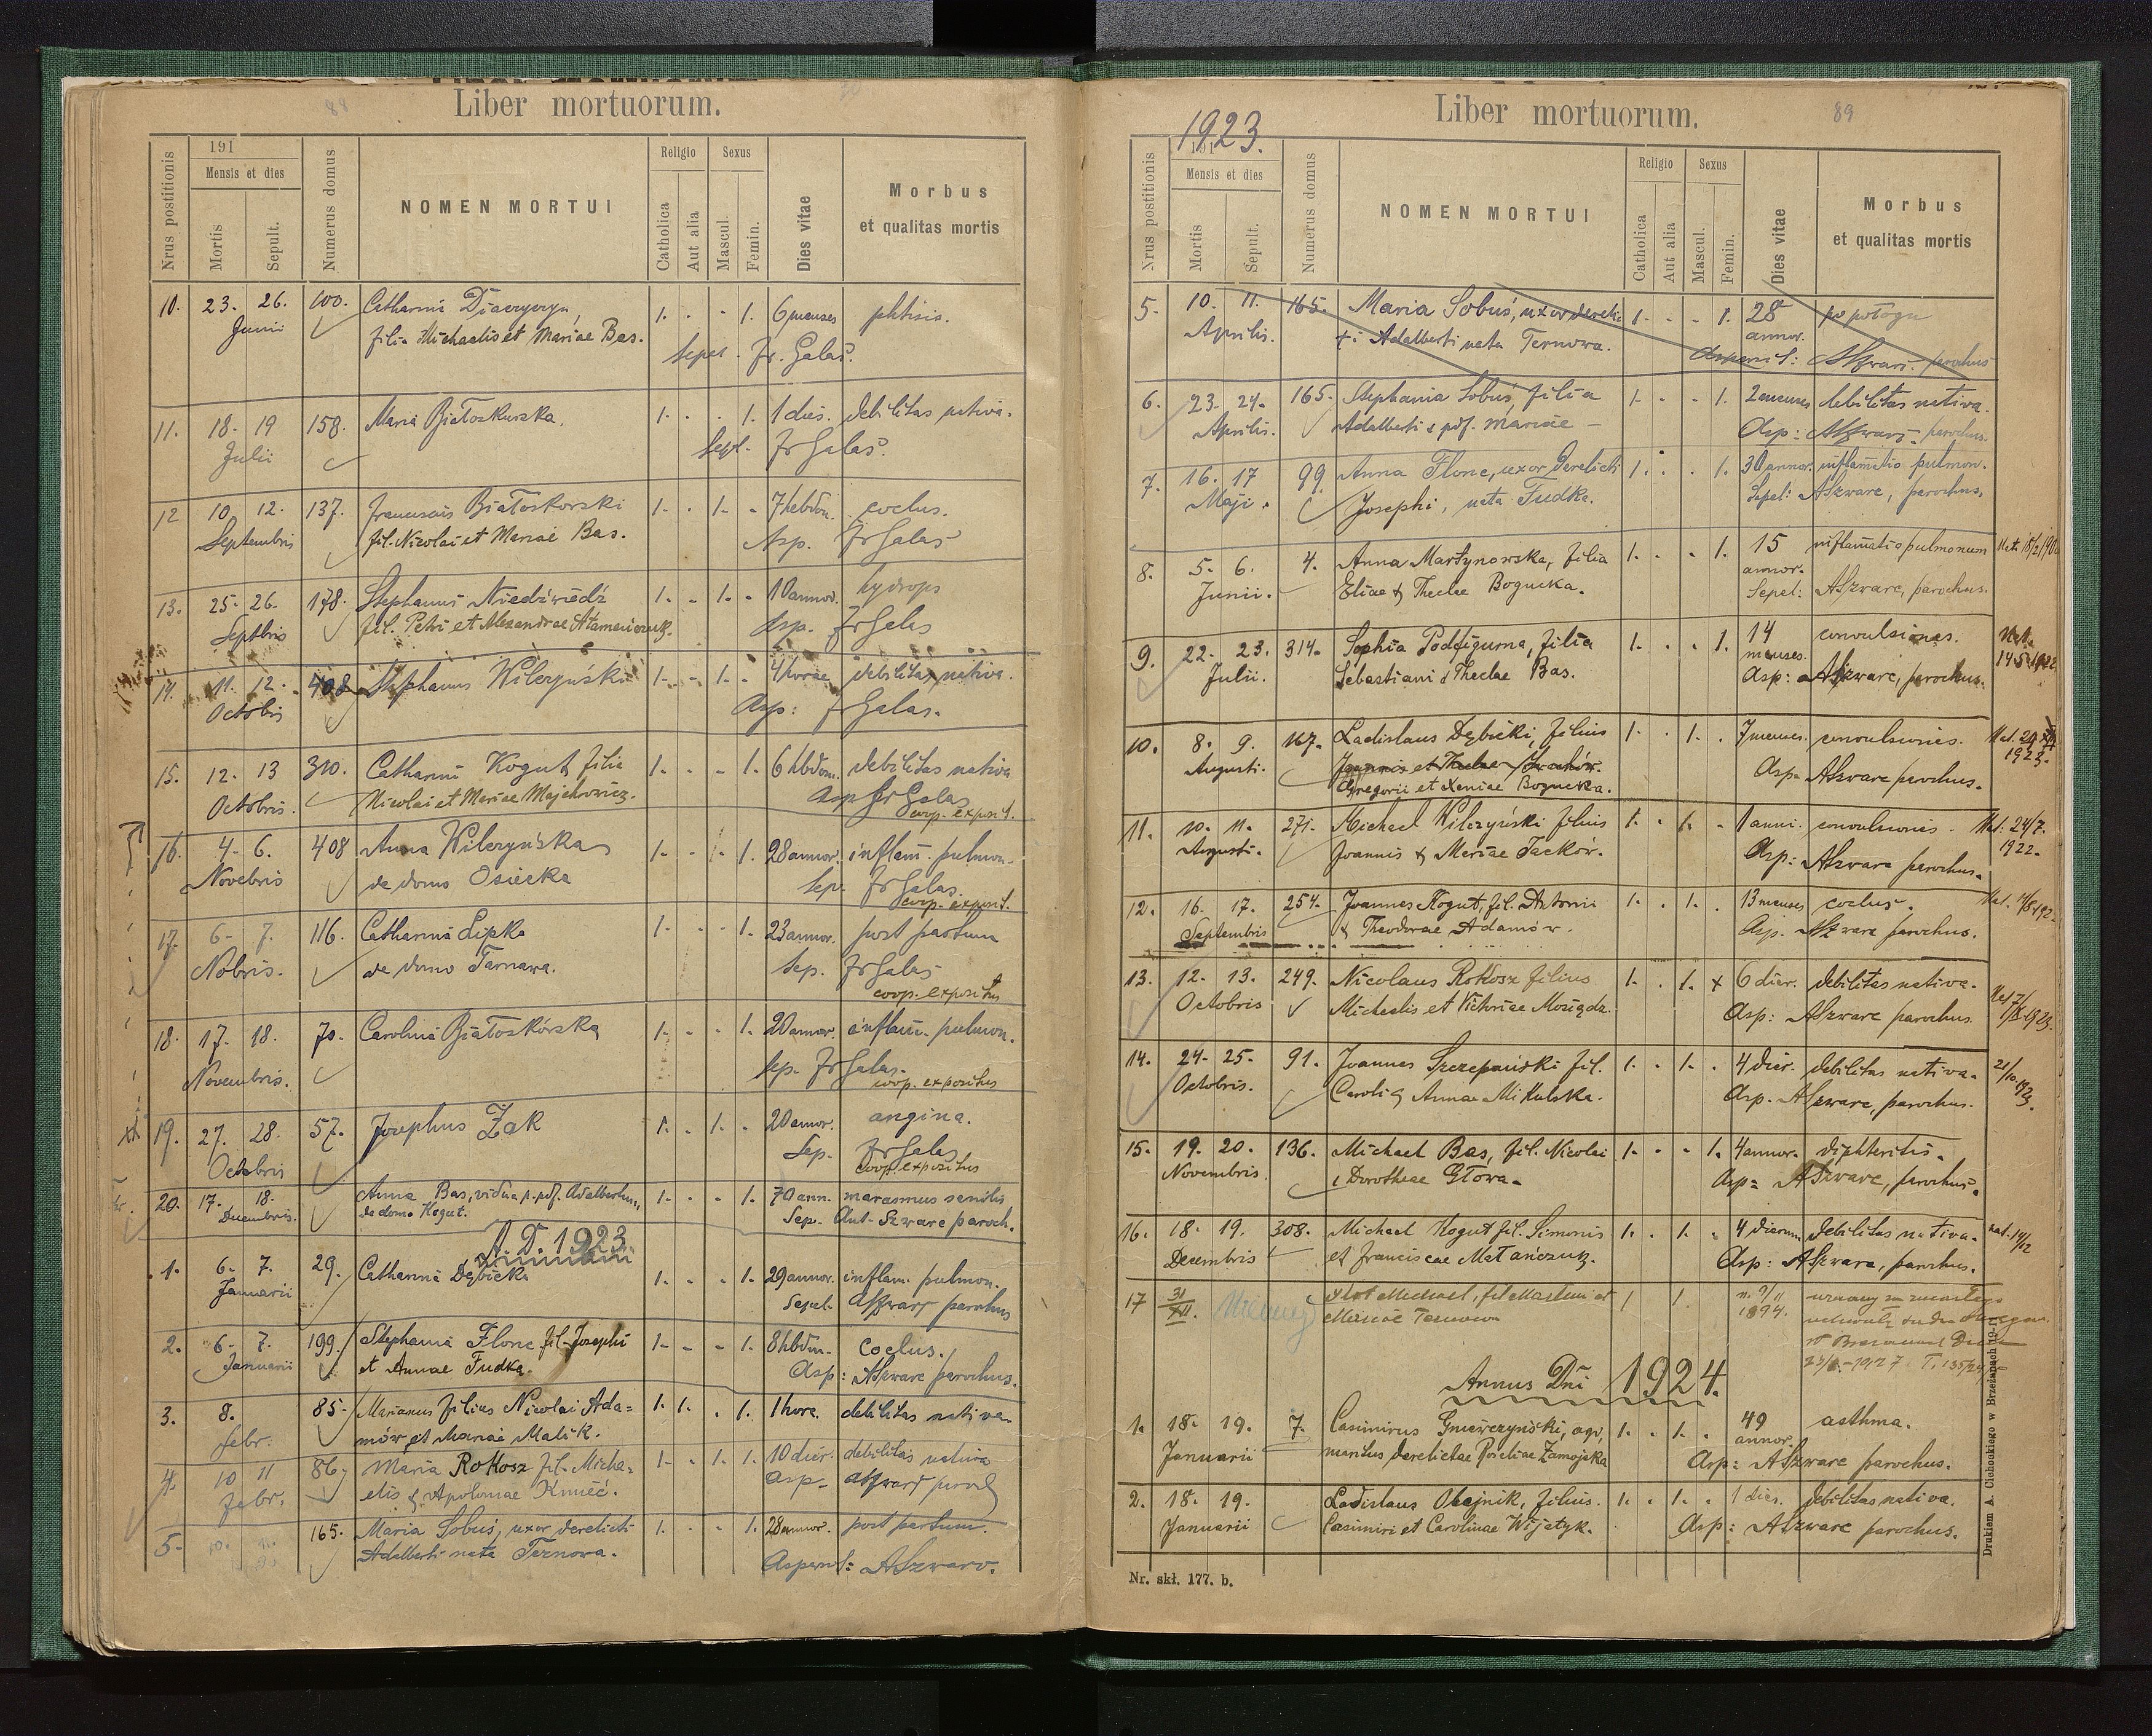 88
Liber mortuorum.
191
Nrus postitionis
Mensis et dies
Mortis
Sepult.
Numerus domus
NOMEN MORTUI
Religio
Catholica
Aut alia
Sexus
Mascul.
Femin.
Dies vitae
Morbus
et qualitas mortis
10. 23. 26. 100. Catharina 1. . . 1. 6 menses phtisis.
Junii filia Michaelis et Mariae Bas. Sepel. Fr. Galas.
11. 18. 19 158. Maria Białoskurska. 1. . . 1. 1 dies. debilitas nativa.
Julii Sepel. Fr Galas.
12 10. 12. 137. Franciscus Białoskorski 1. . 1. . 7 hebdom. coclus.
Septembris fil. Nicolai et Mariae Bas. Asp. Fr Galas
13. 25. 26. 178. Stephanus Niedźwiedź 1. . 1. . 10 annor. hydrops
Septbris fil. Petri et Alexandrae Atamańczuk. Asp. Fr Galas
14. 11. 12. 408 Stephanus Wilczyński 1. . 1. . 4 horae debilitas nativa.
Octobris Asp: Fr Galas.
15. 12. 13 310. Catharina Kogut filia 1. . . 1. 6 hbdom. debilitas nativa
Octobris. Nicolai et Mariae Majchowicz. Asp Fr Galas
coop. exposit.
16. 4. 6. 408 Anna Wilczyńska 1. . . 1. 28 annor. inflam. pulmon.
Novebris de domo Osiecka Sep. Fr Galas.
coop. exposit.
17. 6. 7. 116. Catharina Lipka 1. . . 1. 23 annor. post partum
Nobris. de domo Tarnawa. Sep. Fr Galas
coop. expositus
18. 17. 18. 70. Carolina Białoskórska 1. . . 1. 20 annor. inflam. pulmon.
Novembris. Sep. Fr Galas.
coop. expositus
19. 27. 28. 57. Josephus Żak 1. . 1. . 20 annor. angina.
Octobris Sep. Fr Galas
coop. expositus
20. 17. 18. Anna Bas, vidua p. def. Adalbertum, 1. . . 1. 70 ann. marasmus senilis
Decembris. de domo Kogut. Sep. Ant. Szwarc paroch.
A. D. 1923.
1. 6. 7. 29. Catharina Dębicka 1. . . 1. 29 annor. inflam. pulmon.
Januarii Sepel. ASzwarc parochus
2. 6. 7. 199. Stephania Flonc fil. Josephi 1. . . 1. 8 hbdm. Coclus.
Januarii et Annae Fudka. Asp: ASzwarc parochus.
3. 8. 85. Marianus filius Nicolai Ada= 1. 1. . 1. 1 hora. debilitas nativa
febr. mów et Mariae Malik.
4. 10 11 86. Maria Rokosz fil. Micha= 1. . 1. 1. 10 dier. debilitas nativa
febr. elis & Apoloniae Kmieć. Asp. ASzwarc paroch
5. 10. 11. 165. Maria Sobuś, uxor derelicti 1. . . 1. 28 annor. post partum.
Adalberti nata Ternowa. Aspersit: ASzwarc.
89
Liber mortuorum.
1923.
191
Nrus postitionis
Mensis et dies
Mortis
Sepult.
Numerus domus
NOMEN MORTUI
Religio
Catholica
Aut alia
Sexus
Mascul.
Femin.
Dies vitae
Morbus
et qualitas mortis
5. 10. 11. 165. Maria Sobuś, uxor derelic 1. . . 1. 28 po połogu
Aprilis. ti Adalberti nata Ternowa. annor.
Aspersit: ASzwarc. parochus
6. 23. 24. 165. Stephania Sobuś, filia 1. . . 1. 2 menses debilitas nativa.
Aprilis. Adalberti & pdf. Mariae — Asp: ASzwarc. parochus.
7. 16. 17 99. Anna Flonc, uxor derelicti 1. . . 1. 30 annor. inflamatio pulmon.
Maji. Josephi, nata Fudka. Sepel: ASzwarc, parochus.
8. 5. 6. 4. Anna Martynowska, filia 1. . . 1. 15 inflamatio pulmonum
Junii. Eliae & Theclae Bogucka. annor.
Sepel: ASzwarc, parochus.
9. 22. 23. 314. Sophia Poddfigurna, filia 1. . . 1. 14 convulsiones. Nat.
Julii. Sebastiani & Theclae Bas. menses.
Asp: ASzwarc, parochus.
10. 8. 9. 167. Ladislaus Dębicki, filius 1. . 1. . 7 menses. convulsiones.
Augusti. Joannis et Theclae Iwachów. Asp. ASzwarc parochus. 1923.
Gregorii et Xeniae Bogucka.
11. 10. 11. 271. Michael Wilczyński filius 1. . 1. . 1 anni. convulsiones. Nat. 24/7.
Augusti. Joannis & Mariae Jackow. Asp: ASzwarc parochus. 1922.
12. 16. 17. 254. Joannes Kogut, fil. Antonii 1. . 1. . 13 menses coclus.
Septembris & Theodorae Adamów. Asp. ASzwarc parochus.
13. 12. 13. 249. Nicolaus Rokosz filius 1. . 1. x 6 dier. debilitas nativa.
Octobris Michaelis et Victoriae Mosiądz. Asp: ASzwarc parochus.
14. 24. 25. 91. Joannes Szczepański fil. 1. . 1. . 4 dier. debilitas nativa.
Octobris. Caroli & Annae Mikulska. Asp. ASzwarc, parochus. 21/10 1923.
15. 19. 20. 136. Michael Bas, fil. Nicolai 1. . . 1. 4 annor. diphteritis.
Novembris & Dorotheae Głowa. Asp: ASzwarc, parochus.
16. 18. 19. 308. Michael Kogut fil. Simonis 1. . 1. . 4 dierum debilitas nativa. nat. 14/12
Decembris et Franciscae Matańczuk. Asp: ASzwarc, parochus.
17 31/XII. Michael, fil. Martini et 1 1. 1894. uznany za zmarłego
Mariae Tarnowa
Annus Dni 1924.
1. 18. 19. 7. Casimirus Gniewczyński, agr. 1. . 1. . 49 asthma.
Januarii maritus derelictae Rosaliae Zamojska annor.
Asp: ASzwarc parochus.
2. 18. 19. Ladislaus Olejnik, filius. 1. . 1. . 1 dies. debilitas nativa.
Januarii Casimiri et Carolinae Wijatyk. Asp: ASzwarc parochus.
Nr. skł. 177. b.
Drukiem A. Cichockiego w Brzeżanach